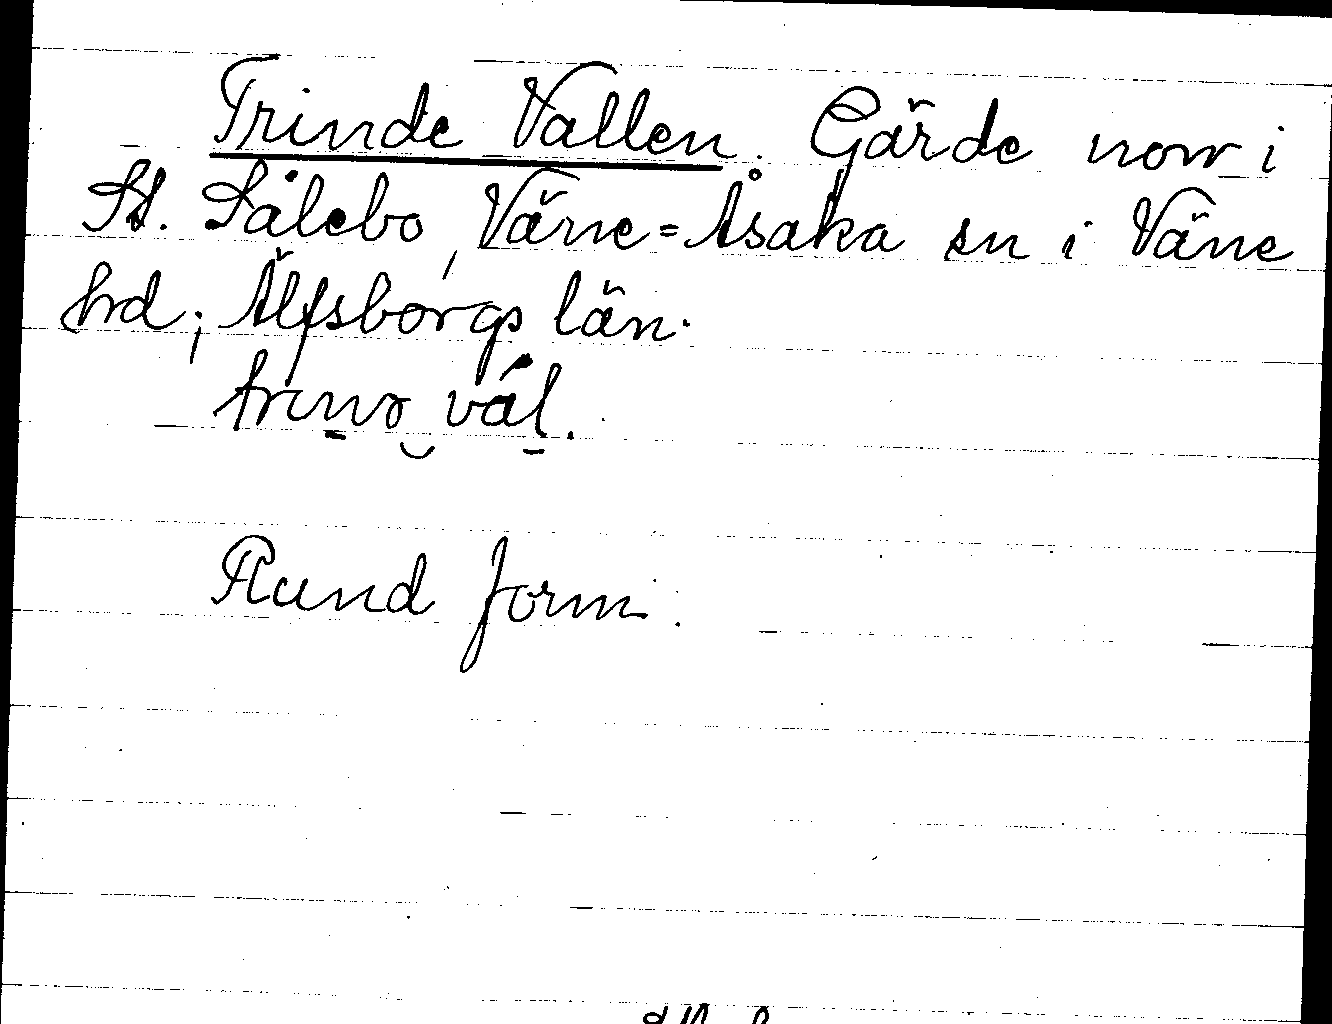 Trinde Vallen. Gärde norr i
St. Sålebo, Väne=Åsaka sn i Väne
hrd; Älfsborgs län.
Rund form.